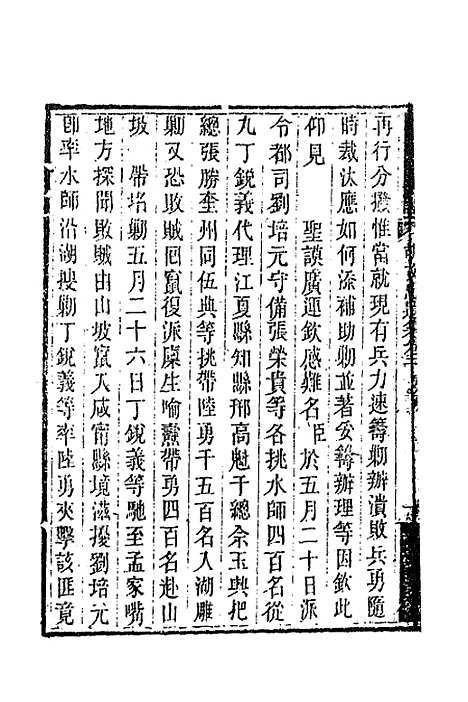 再行分撥惟當就現有兵力速籌勦辦潰敗兵勇隨
時裁汰應如何添補助勦並著妥籌辦理等因欽此
仰見　聖謨廣運欽感難名臣於五月二十日派
令都司劉培元守備張榮貴等各挑水師四百名從
九丁銳義代理江夏縣知縣邢高魁千總余玉典把
總張勝奎州同伍典等挑帶陸勇千五百名入湖雕
勦又恐敗賊回竄復派廩生喻燾帶勇四百名赴山
坡一帶堵勦五月二十六日丁銳義等馳至孟家嘴
地方探聞敗賊由山坡竄入咸甯縣境滋擾劉培元
卽率水師沿湖搜勦丁銳義等率陸勇夾擊該匪竟